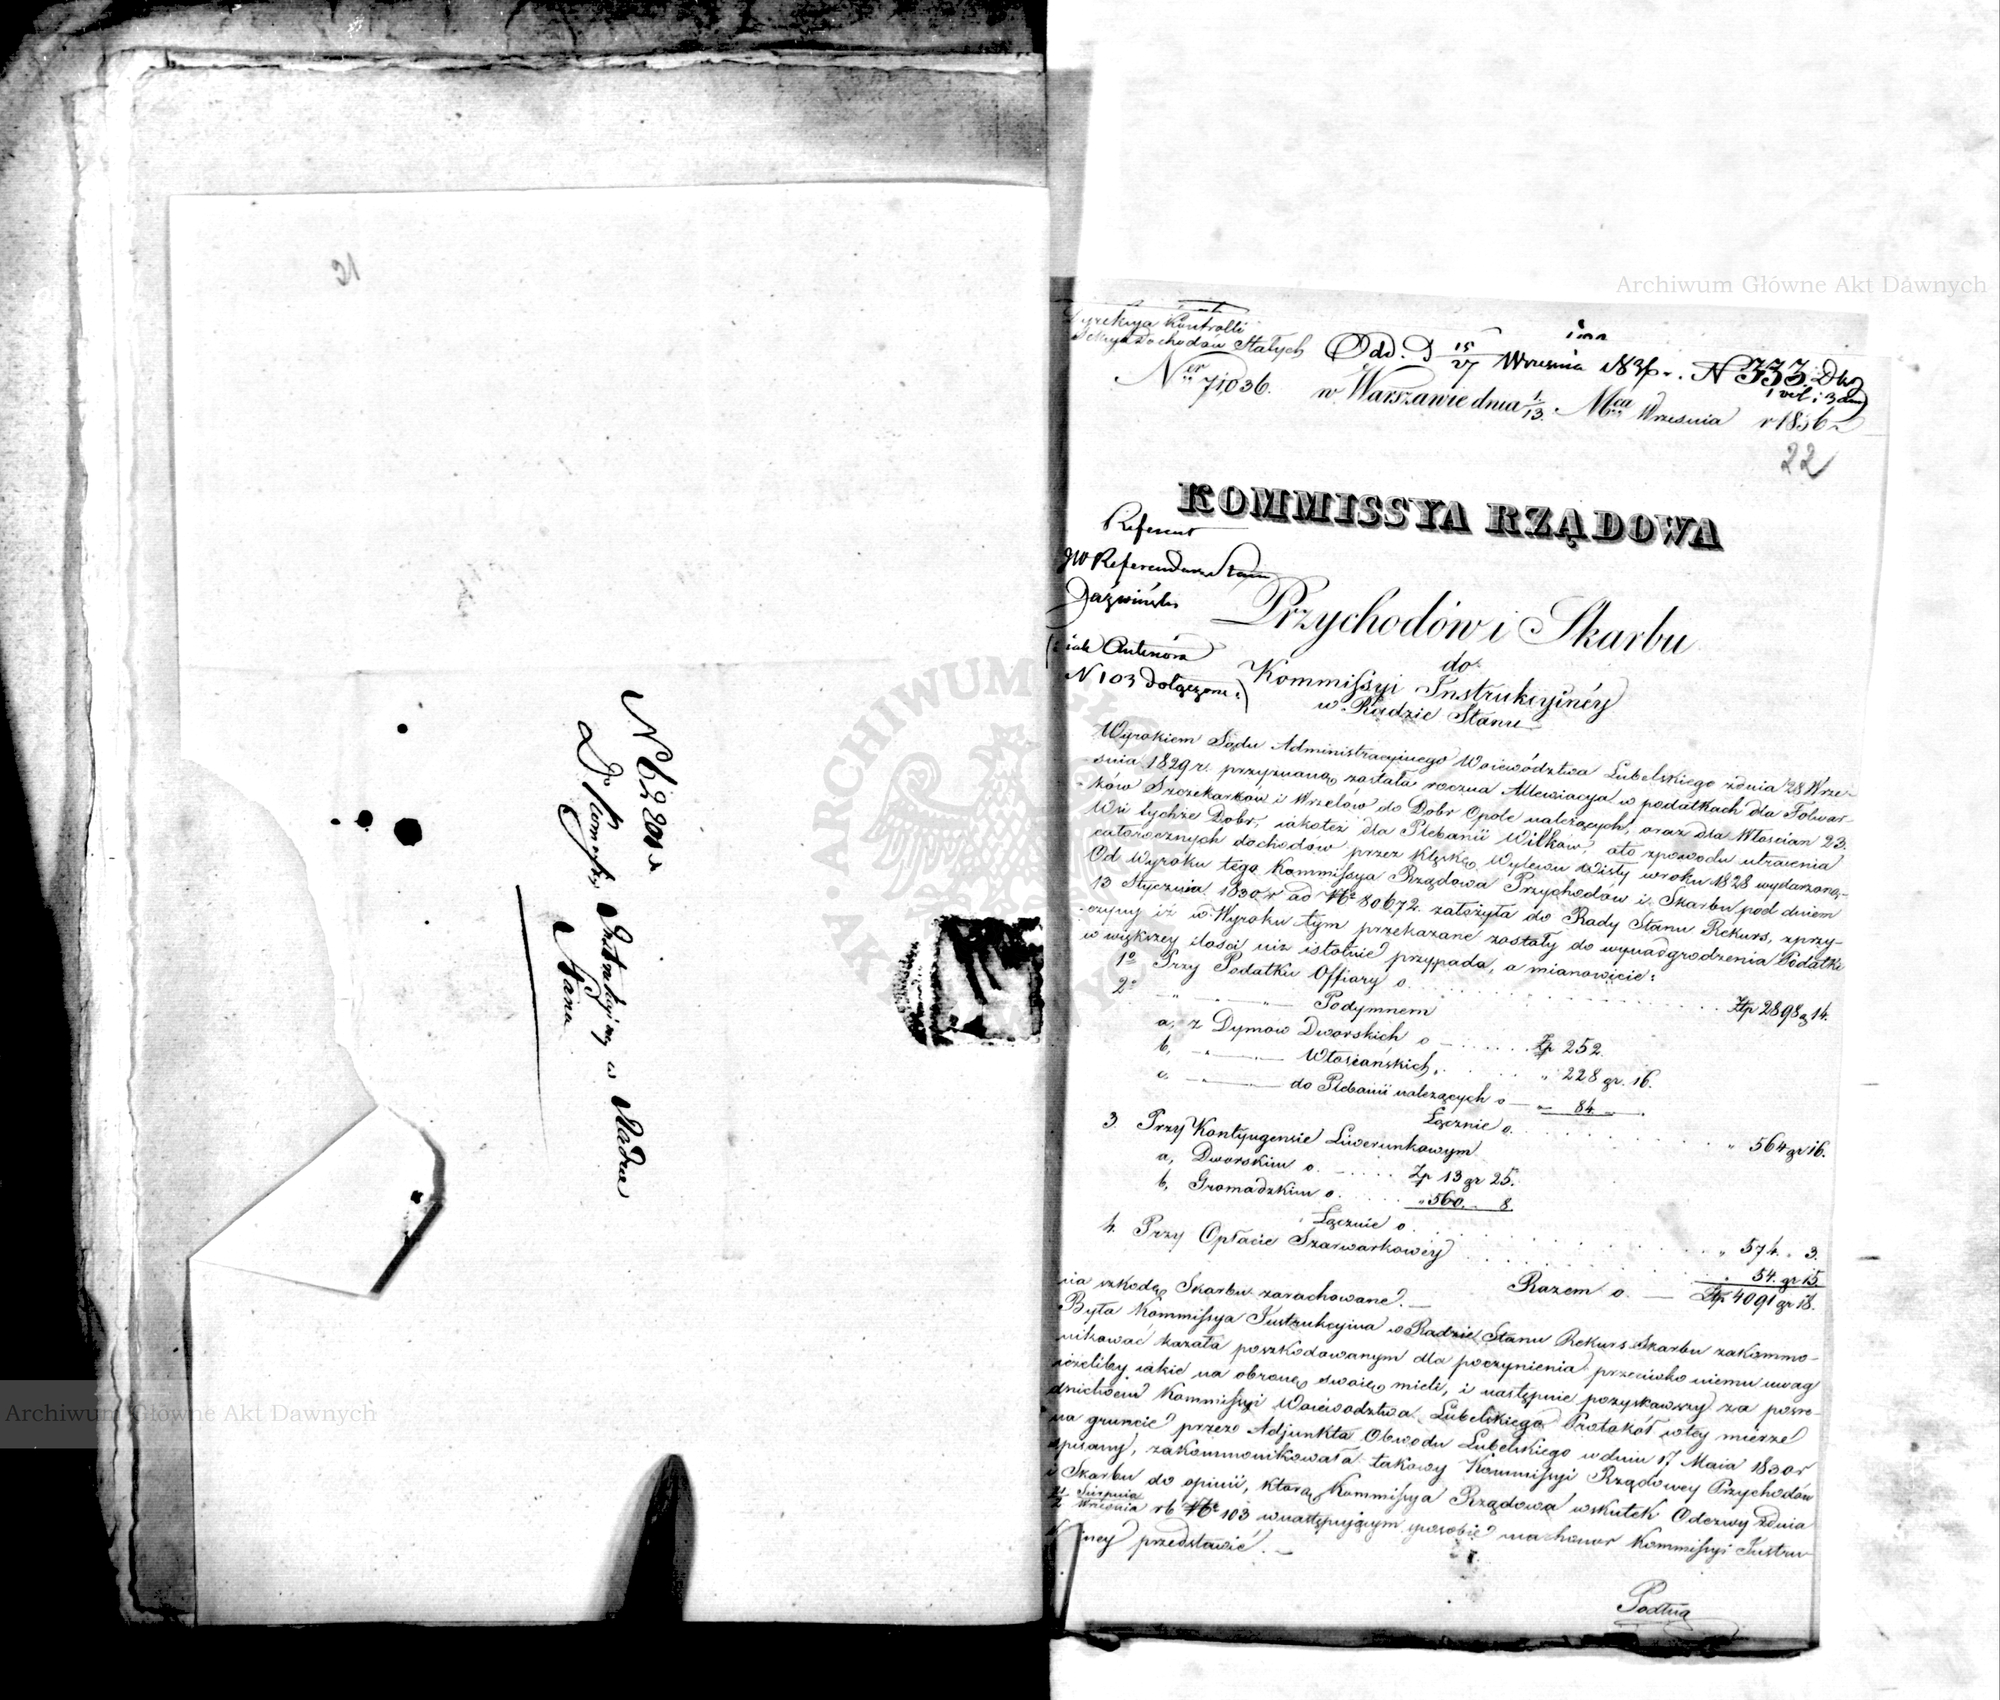 21
N 62201
Do Kommissyi Instrukcyiney w Radzie
Stanu
Archiwum Główne Akt Dawnych
Archiwum Główne Akt Dawnych
Dyrekcya Kontrolli
Sekcya Dochodów Stałych
Odd. D 15/27 Września 1836 r. N 333. Dkg
Ner 71036.
w Warszawie dnia 1/13. Mca Września r 1836
22
KOMMISSYA RZĄDOWA
Referent
JW Referendarz Stanu
Przychodów i Skarbu
N 103 dołączone
do
Kommissyi Instrukcyiney
w Radzie Stanu
Wyrokiem Sądu Administracyinego Woiewództwa Lubelskiego zdnia 28 Wrze-
śnia 1829 r. przyznaną została roczna Allewiacya w podatkach dla Folwar-
ków Szczekarków i Wrzelów do Dóbr Opole należących, oraz dla Włościan 23.
Wsi tychże Dóbr, iakoteż dla Plebanii Wilków, ato zpowodu utracenia
całorocznych dochodów przez klęskę Wylewu Wisły wroku 1828 wydarzoną.-
Od Wyroku tego Kommissya Rządowa Przychodów i Skarbu pod dniem
13 Stycznia 1830 r ad No 80672. założyła do Rady Stanu Rekurs, zprzy-
czyny iż w Wyroku tym przekazane zostały do wynadgrodzenia Podatki
w większey ilości niż istotnie przypada, a mianowicie:
1o Przy Podatku Offiary o . . . . Złp 2898 g 14.
2o " — " — Podymnem
a, z Dymów Dworskich o — . . . . Zp 252.
b, — " — Włościańskich, . . . . " 228 gr. 16.
c. — " — do Plebanii należących o — " — 84 — " — .
Łącznie o. . . . . " 564 gr 16.
3. Przy Kontyngensie Liwerunkowym
a, Dworskim o. — . . . . Zp 13 gr 25.
b, Gromadzkim o. . . . . " 560. " 8.
Łącznie o . . . . " 574. " 3.
4. Przy Opłacie Szarwarkowey . . . . " 54. gr 15
Razem o. — Złp 4091 gr 18.
na szkodę Skarbu zarachowane. —
Była Kommissya Instrukcyina w Radzie Stanu Rekurs Skarbu zakommu-
nikować kazała poszkodowanym dla poczynienia przeciwko niemu uwag
ieżeliby iakie na obronę swoię mieli, i następnie pozyskawszy za pośre-
dnictwem Kommissyi Woiewództwa Lubelskiego Protokół wtey mierze
na gruncie przez Adjunkta Obwodu Lubelskiego wdniu 17 Maia 1830 r
spisany, zakommunikowała takowy Kommissyi Rządowey Przychodów
i Skarbu do opinii, którą Kommissya Rządowa wskutek Odezwy zdnia
21 Sierpnia
2 Września rb No 103 wnastępuiącym sposobie ma honor Kommissyi Instru-
iney przedstawić. —
Podług